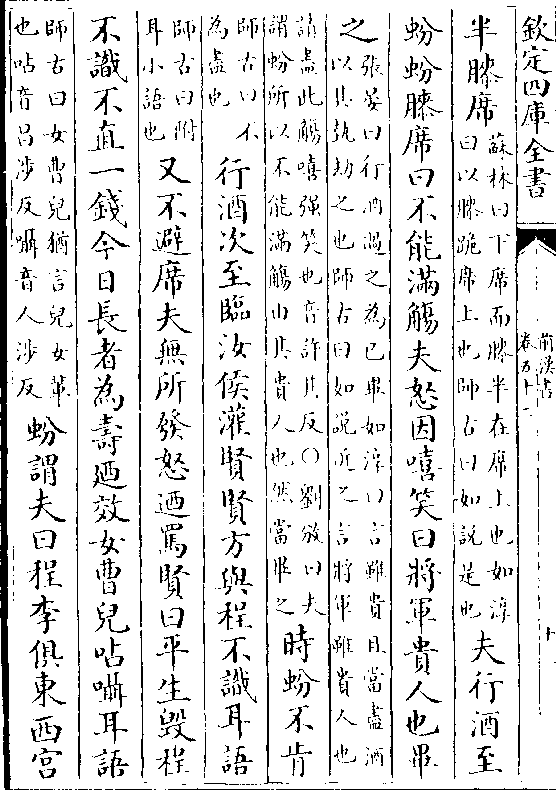 欽定四庫全書
前漢書
卷五十二
十
半膝席蘇林曰下席而膝半在席上也如淳
曰以膝跪席上也師古曰如說是也夫行酒至
蚡蚡膝席曰不能滿觴夫怒因嘻笑曰將軍貴人也畢
之張晏曰行酒過之為已畢如淳曰言雖貴且當盡酒
以其執劫之也師古曰如說近之言將軍雖貴人也
請盡此觴嘻强笑也音許其反○劉攽曰夫
謂蚡所以不能滿觴由其貴人也然當畢之時蚡不肯
師古曰不
為盡也行酒次至臨汝侯灌賢賢方與程不識耳語
師古曰附
耳小語也又不避席夫無所發怒迺罵賢曰平生毀程
不識不直一錢今日長者為壽廼效女曹兒呫囁耳語
師古曰女曹兒猶言兒女輩
也呫音吕涉反囁音人涉反蚡謂夫曰程李俱東西宮